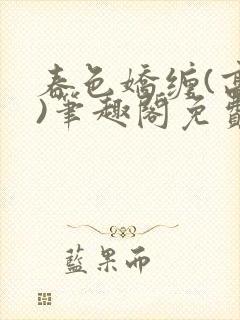 春色嬌缠(高
)筆趣閣免費
藍果而